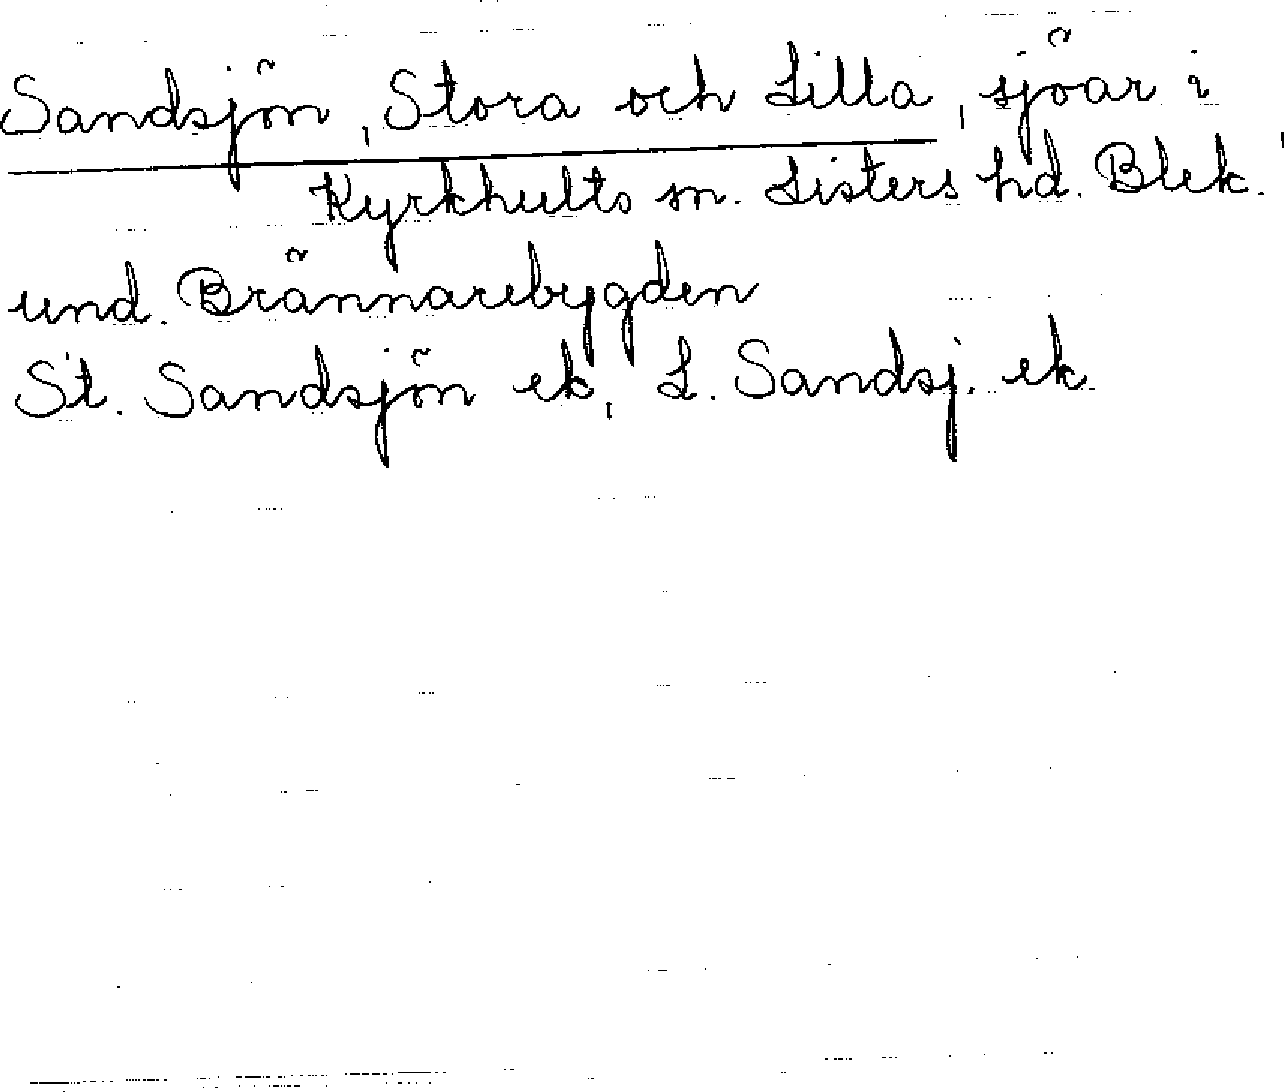 Sandsjön, Stora och Lilla, sjöar i
Kyrkhults sn. Listers hd. Blek.
und. Brännarebygden
St. Sandsjön ek, L. Sandsj. ek